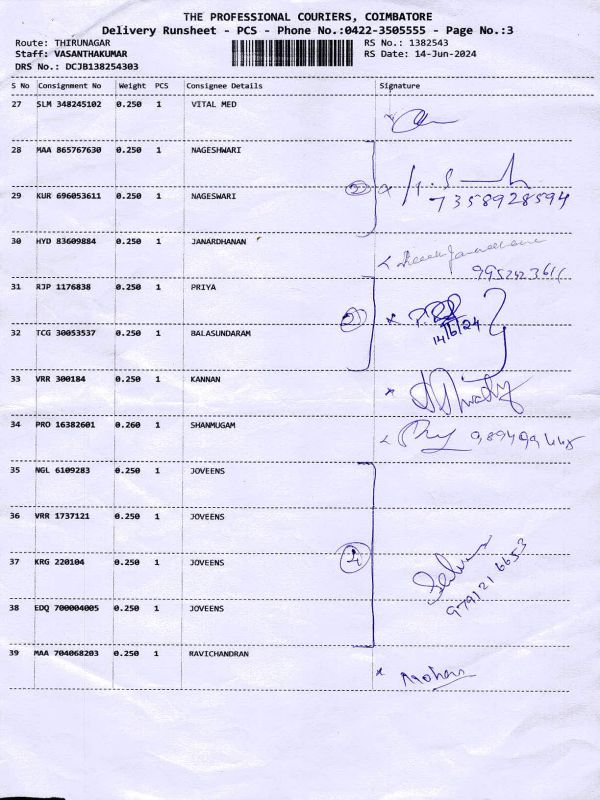 THE PROFESSIONAL COURIERS, COIMBATORE
Delivery Runsheet - PCS - Phone No.:0422-3505555 - Page No.:3
Route: THIRUNAGAR RS No.: 1382543
Staff: VASANTHAKUMAR RS Date: 14-Jun-2024
DRS No.: DCJB138254303
S No Consignment No Weight PCS Consignee Details Signature
27 SLM 348245102 0.250 1 VITAL MED
28 MAA 865767630 0.250 1 NAGESHWARI
29 KUR 696053611 0.250 1 NAGESWARI
2
7358928594
30 HYD 83609884 0.250 1 JANARDHANAN
31 RJP 1176838 0.250 1 PRIYA
2
14/6/24
32 TCG 30053537 0.250 1 BALASUNDARAM
33 VRR 300184 0.250 1 KANNAN
34 PRO 16382601 0.260 1 SHANMUGAM
35 NGL 6109283 0.250 1 JOVEENS
36 VRR 1737121 0.250 1 JOVEENS
37 KRG 220104 0.250 1 JOVEENS
4
9791216653
38 EDQ 700004005 0.250 1 JOVEENS
39 MAA 704068203 0.250 1 RAVICHANDRAN
Mohan